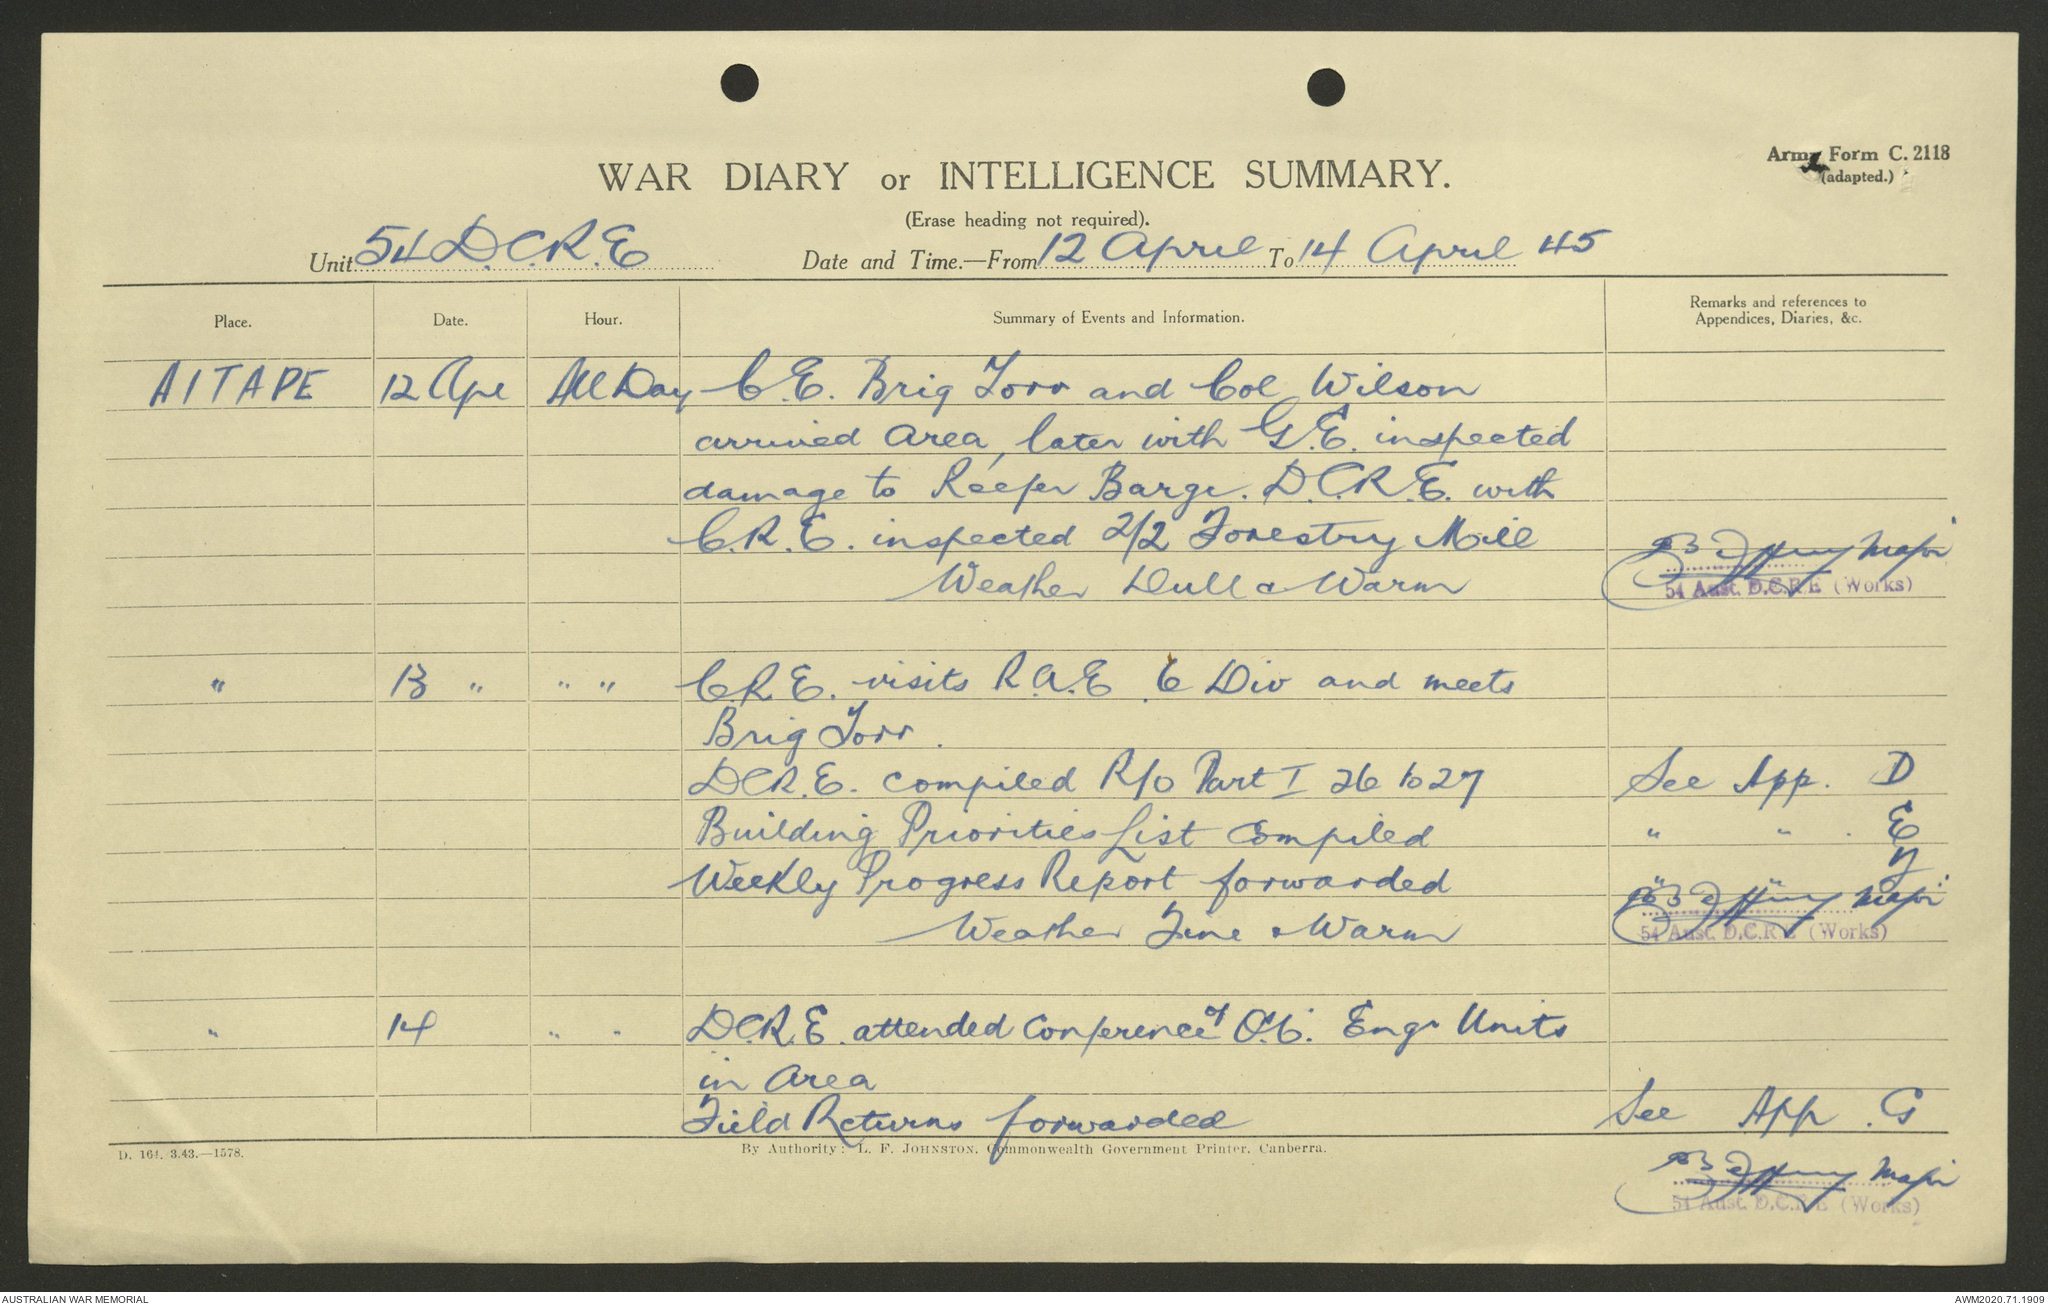 Army Form C. 2118
(adapted.)
WAR DIARY or INTELLIGENCE SUMMARY.
(Erase heading not required).
Unit 54 D.C.R.E Date and Time.—From 12 April To 14 April 45
Place. Date. Hour. Summary of Events and Information. Remarks and references to
Appendices, Diaries, &c.
AITAPE 12 Apl All Day C.E. Brig Torr and Col Wilson
arrived area, later with G.E. inspected
damage to Reefer Barge. D.C.R.E. with
C.R.E. inspected 2/2 Forestry Mill
Weather Dull & Warm
Major
54 Aust. D.C.R.E (Works)
" 13 " " " C.R.E. visits R.A.E. 6 Div and meets
Brig Torr.
DCR.E. compiled R/O Part I 26 to 27 See App. D
Building Priorities List Compiled " " . E
Weekly Progress Report forwarded " "
Weather Fine & Warm
Major
54 Aust. D.C.R.E (Works)
" 14 " " D.C.R.E. attended Conference of O.C. Engr Units
in area
Field Returns forwarded See App. G
D. 161. 3.43.—1578. By Authority: L. F. JOHNSTON, Commonwealth Government Printer, Canberra.
Major
54 Aust. D.C.R.E (Works)
AUSTRALIAN WAR MEMORIAL AWM2020.71.1909